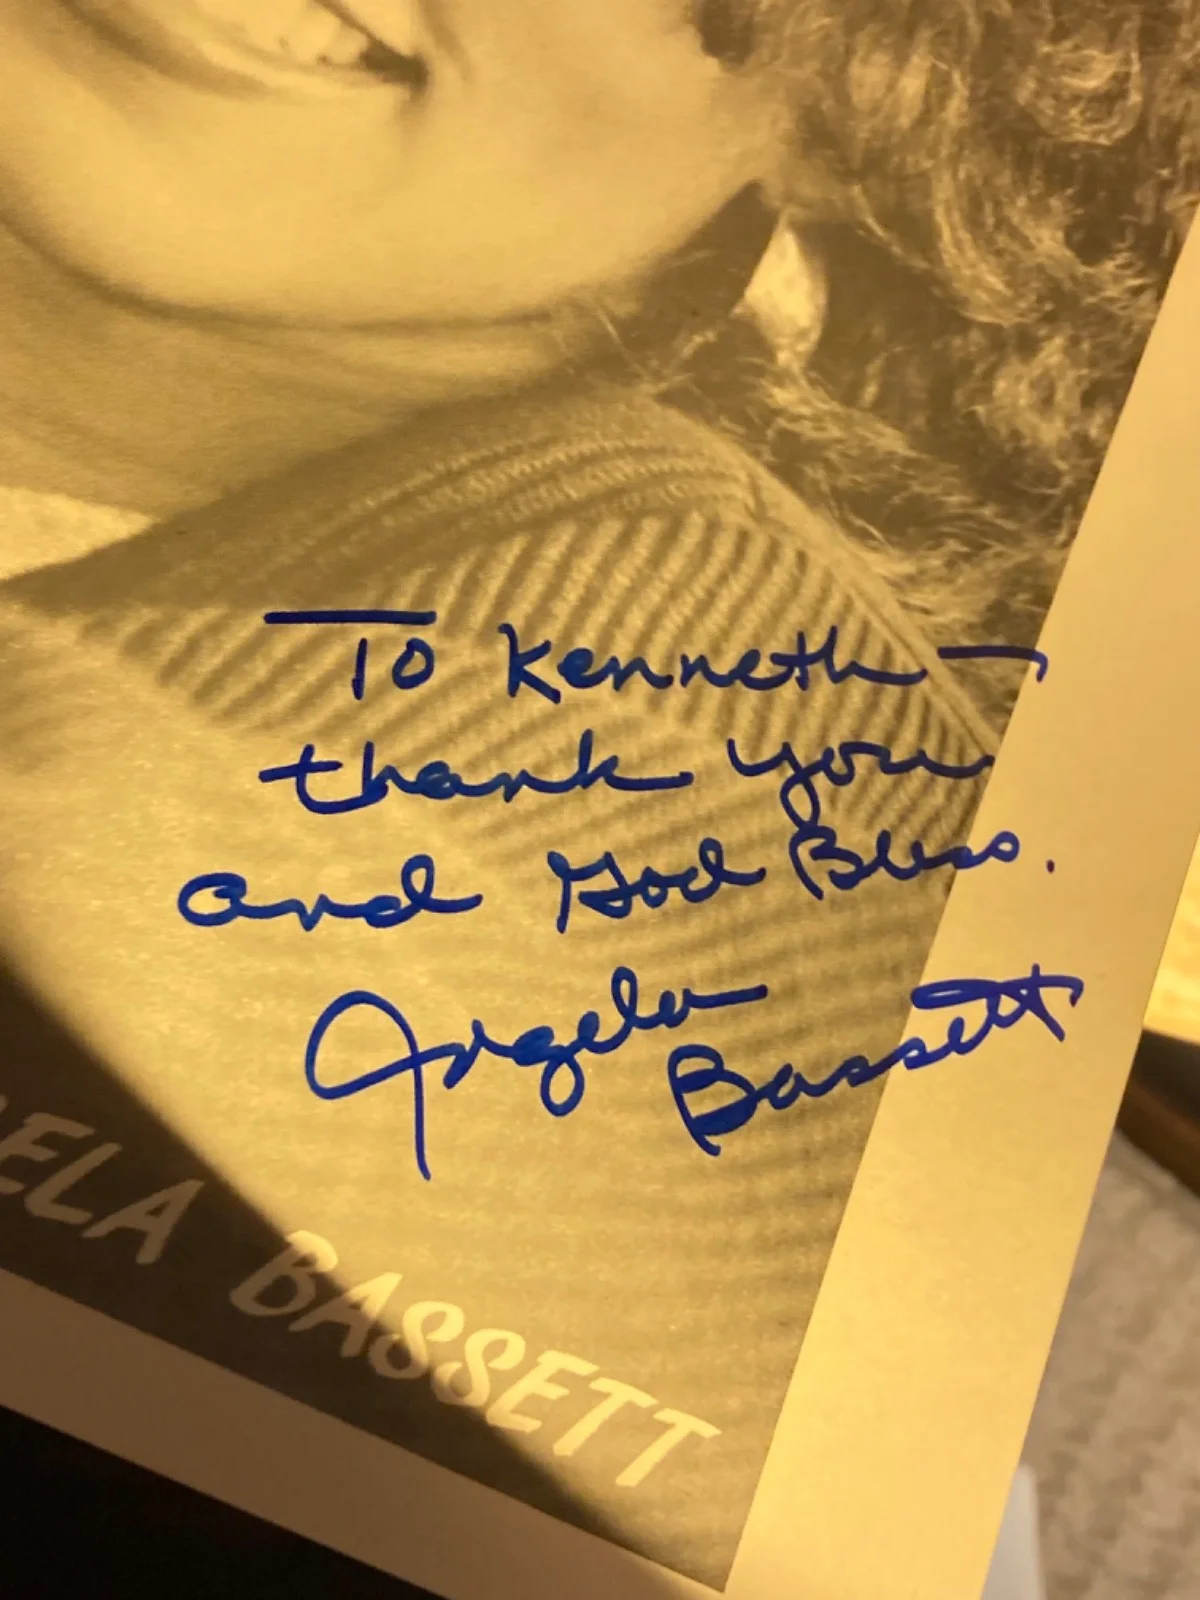 To Kenneth —
thank you
and God Bless.
Angela
Bassett
ELA BASSETT